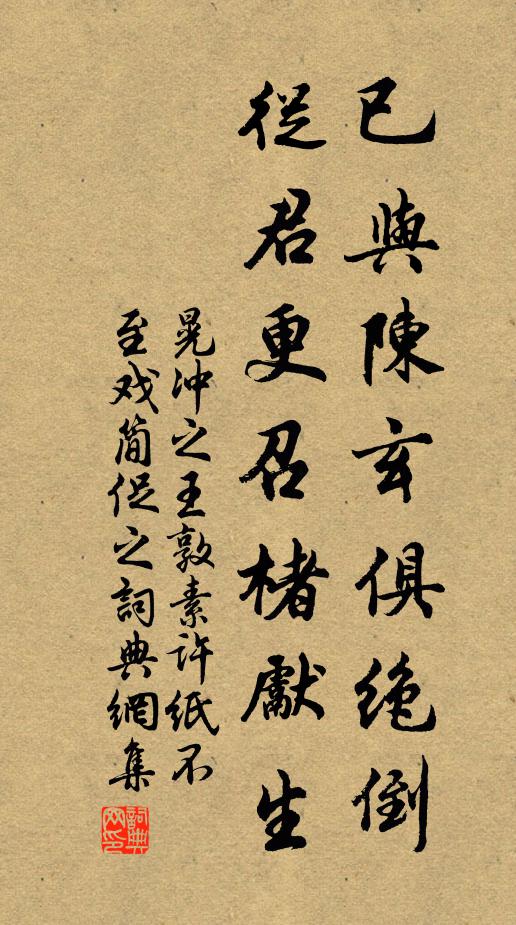 已與陳玄俱絕倒
從君更召楮獻生
晁沖之王敦素許紙不
至戏簡促之詞典網集
詞典网印